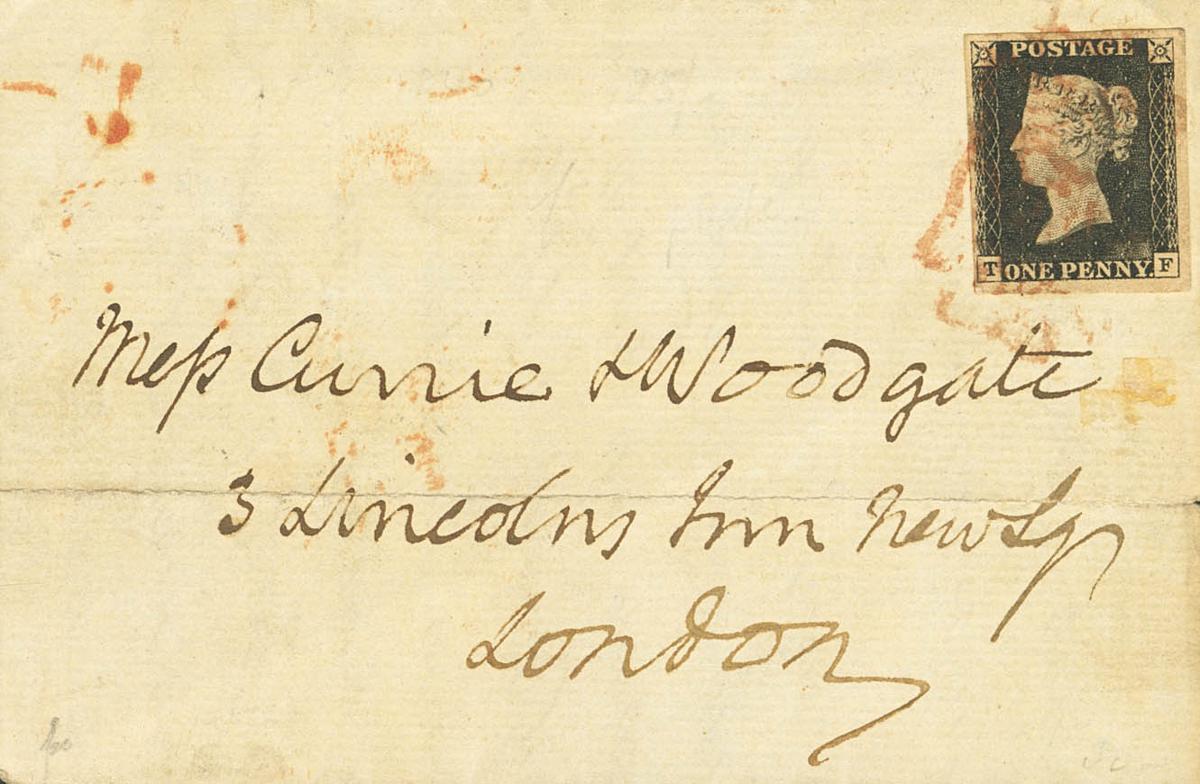 POSTAGE
T ONE PENNY. F
Mess Currie & Woodgate
3 Lincolns Inn New Sqr
London